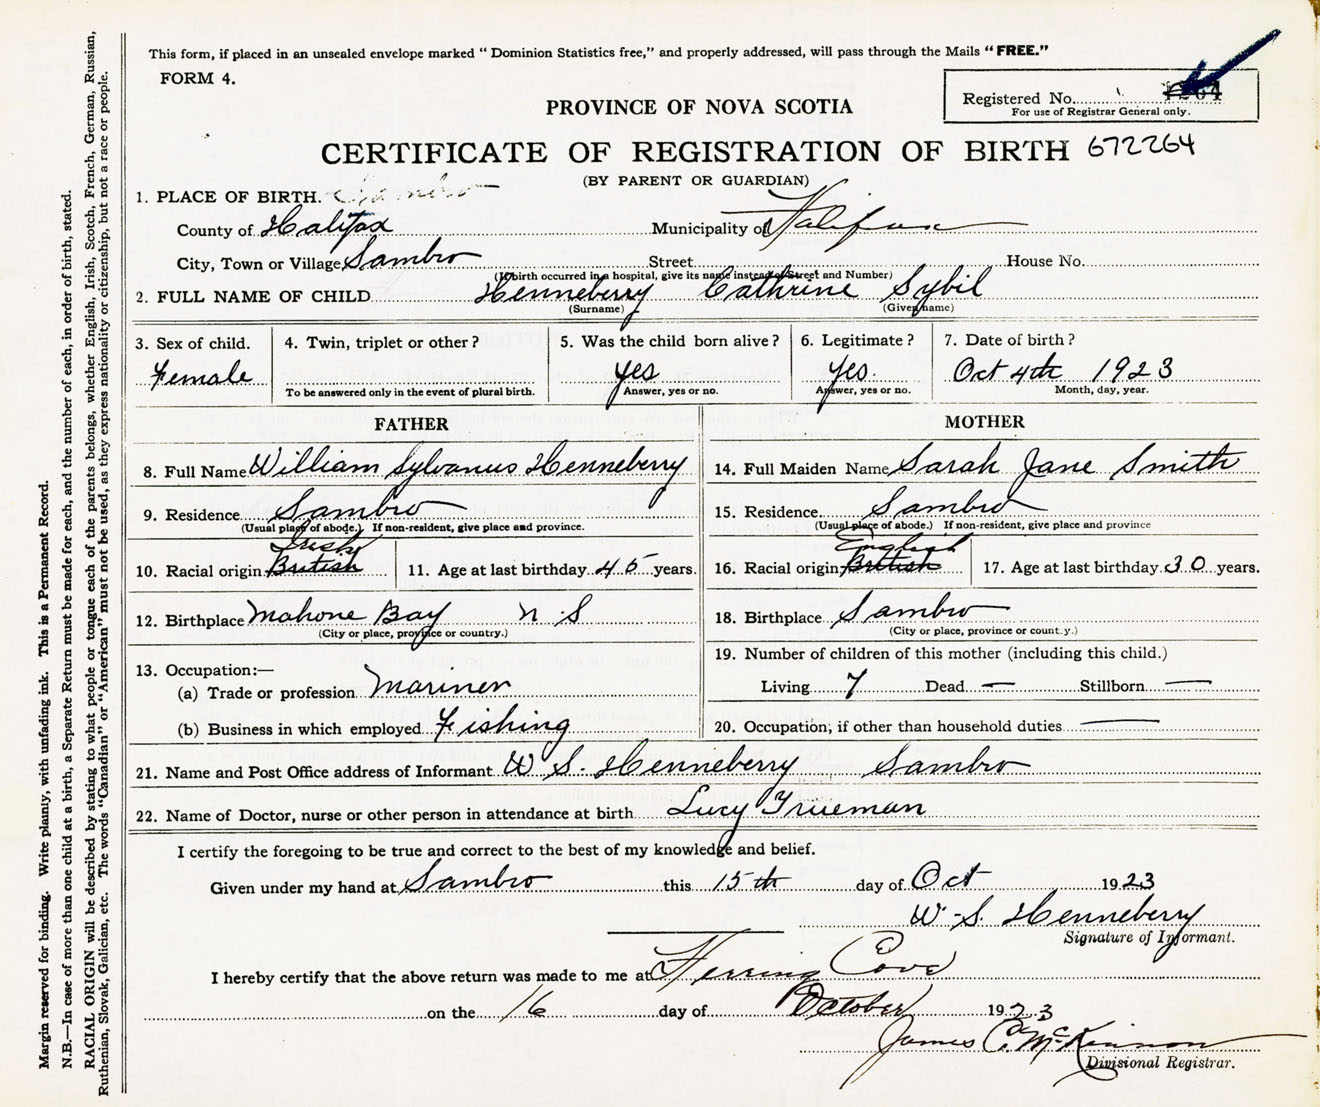 This form, if placed in an unsealed envelope marked "Dominion Statistics free," and properly addressed, will pass through the Mails "FREE."
FORM 4.
Registered No.
For use of Registrar General only.
PROVINCE OF NOVA SCOTIA
CERTIFICATE OF REGISTRATION OF BIRTH 672264
(BY PARENT OR GUARDIAN)
1. PLACE OF BIRTH. Sambro
County of Halifax Municipality of Halifax
City, Town or Village Sambro Street House No.
(If birth occurred in a hospital, give its name instead of Street and Number)
2. FULL NAME OF CHILD Henneberry Cathrine Sybil
(Surname) (Given name)
3. Sex of child. 4. Twin, triplet or other? 5. Was the child born alive? 6. Legitimate? 7. Date of birth?
Female yes yes. Oct 4th 1923
To be answered only in the event of plural birth. Answer, yes or no. Answer, yes or no. Month, day, year.
FATHER MOTHER
8. Full Name William Sylvanus Henneberry 14. Full Maiden Name Sarah Jane Smith
9. Residence Sambro 15. Residence Sambro
(Usual place of abode.) If non-resident, give place and province. (Usual place of abode.) If non-resident, give place and province
Irish English
10. Racial origin British 11. Age at last birthday 45 years. 16. Racial origin British 17. Age at last birthday 30 years.
12. Birthplace Mahone Bay N S 18. Birthplace Sambro
(City or place, province or country.) (City or place, province or county.)
13. Occupation:— 19. Number of children of this mother (including this child.)
(a) Trade or profession Mariner Living 7 Dead — Stillborn —
(b) Business in which employed Fishing 20. Occupation, if other than household duties —
21. Name and Post Office address of Informant W S. Henneberry Sambro
22. Name of Doctor, nurse or other person in attendance at birth Lucy Trueman
I certify the foregoing to be true and correct to the best of my knowledge and belief.
Given under my hand at Sambro this 15th day of Oct 1923
W. S. Henneberry
Signature of Informant.
I hereby certify that the above return was made to me at Herring Cove
on the 16 day of October 1923
James C. McKinnon
Divisional Registrar.
Margin reserved for binding. Write plainly, with unfading ink. This is a Permanent Record.
N.B.—In case of more than one child at a birth, a Separate Return must be made for each, and the number of each, in order of birth, stated.
RACIAL ORIGIN will be described by stating to what people or tongue each of the parents belongs, whether English, Irish, Scotch, French, German, Russian,
Ruthenian, Slovak, Galician, etc. The words "Canadian" or "American" must not be used, as they express nationality or citizenship, but not a race or people.